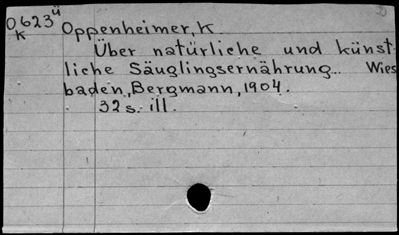 O623ü Oppenheimer, K.
K
Über natürliche und künst
liche Säuglingsernährung.. Wies
baden, Bergmann, 1904.
32 s. ill.